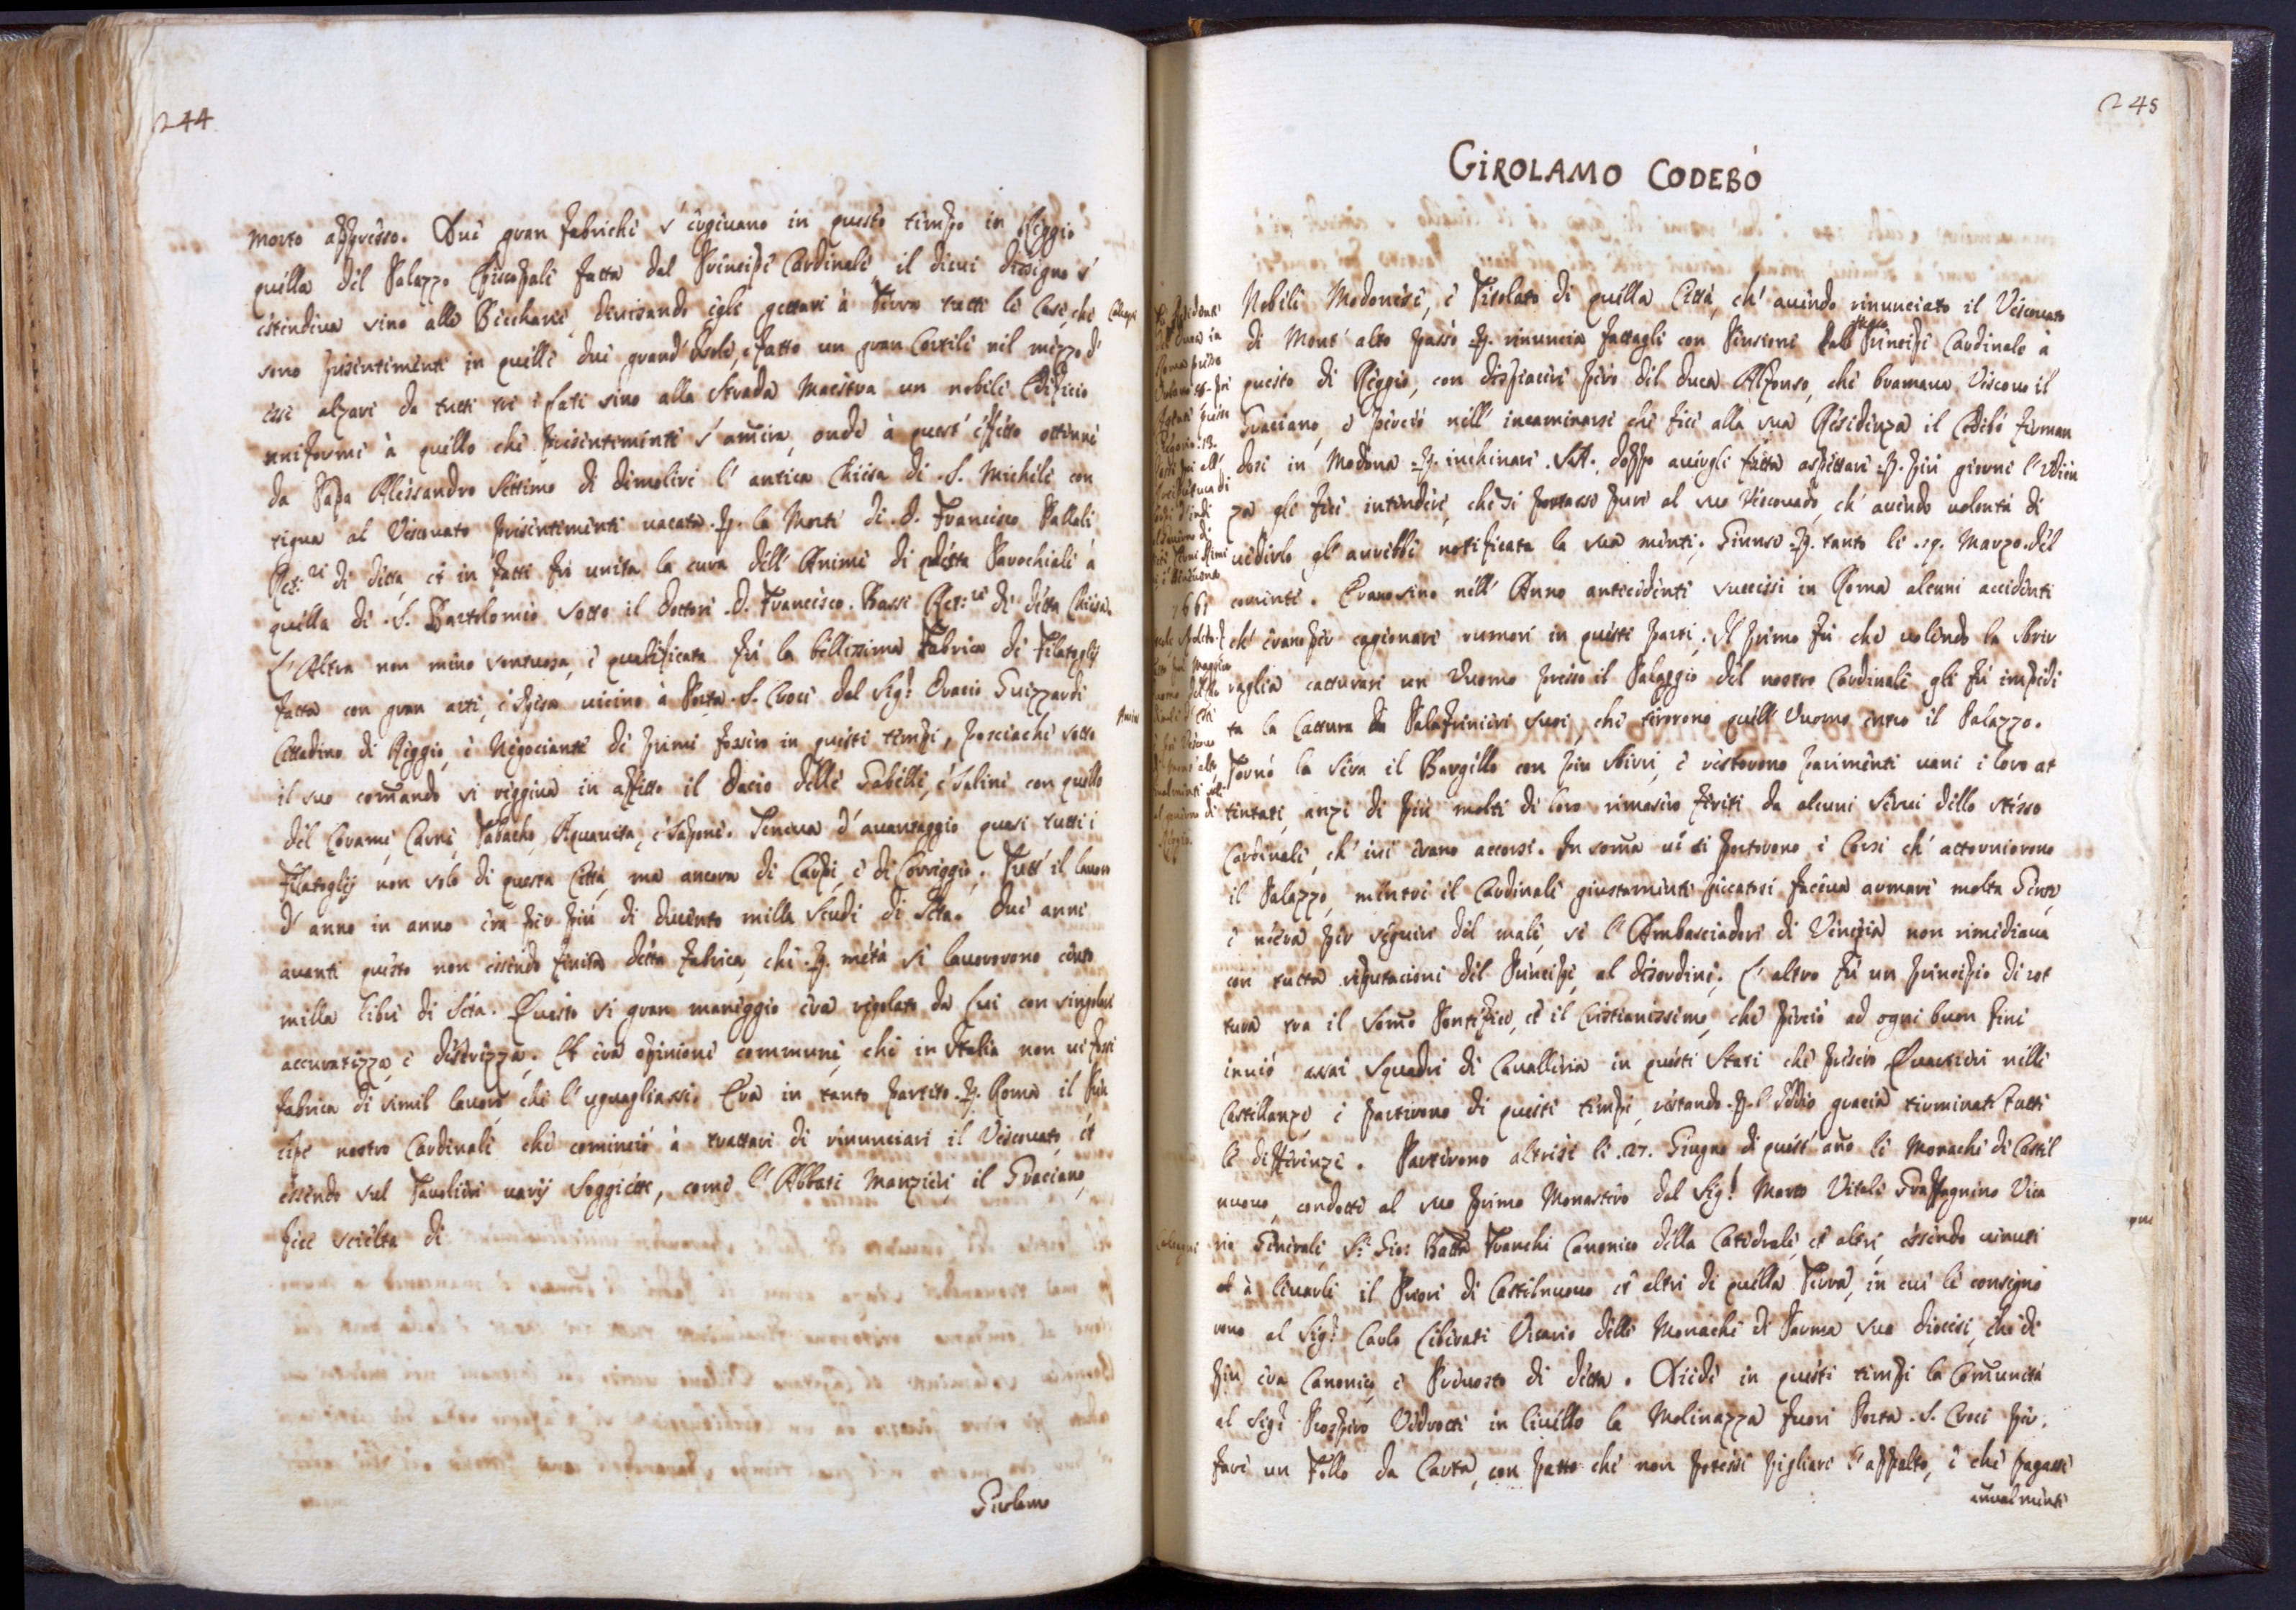 244
morto appresso. Due gran fabriche s' ergevano in questo tempo in Reggio
quella del Palazzo Episcopale fatta dal Principe Cardinale, il di cui dissegno s'
estendeva sino alle Beccharie, divisando egli gettare à Terra tutte le Case, che
sono presentemente in quelle due grand' Isole, e fatto un gran Cortile nel mezzo d'
esse alzare da tutte tre i lati sino alla Strada Maestra un nobile Edificio
uniforme à quello che presentemente s' amira, onde à quest' effetto ottenne
da Papa Alessandro Settimo di demolire l' antica Chiesa di S. Michele con
tigua al Vescovato presentemente vacata p. la Morte di D. Francesco Pallali
Ret:re di detta, et in fatti fu unita la cura dell' Anime di detta Parochiale à
quella di S. Bartolomeo sotto il Dottore D. Francesco Bassi Ret:re di detta Chiesa.
L' Altra non meno sontuosa, e qualificata fu la bellissima Fabrica di Filatoglij
fatta con gran arte, e spesa vicino à Porta S. Croce dal Sig.r Oracio Guizzardi
Cittadino di Reggio, e Negociante de primi fossero in questi tempi, posciache sotto
il suo comando si reggeva in affitto il Dacio delle Gabelle, e Saline con quello
del Corame, Carne, Tabacho, Aquavita, e Sapone. Teneva d' avantaggio quasi tutti i
Filatoglij non solo di questa Città, ma ancora di Carpi, e di Correggio. Tutt' il lavoro
d' anno in anno era per più di ducento milla scudi di Seta. Due anni
avanti questo non essendo finita detta fabrica, che p. metà si lavororono cento
milla libre di Seta. Questo si gran maneggio era regolato da lui con singolar
accuratezza, e destrezza. Et era opinione commune, che in Italia non vi fosse
fabrica di simil lavoro, che l' uguagliasse. Era in tanto partito p. Roma il Prin
cipe nostro Cardinale che cominciò à trattare di rinunciare il Vescovato, et
essendo sul Tavoliere varij Soggietti, come l' Abbate Manzieri, il Graciano,
fece scielta di
Girolamo
245
GIROLAMO CODEBÓ
Nobile Modonese, e Titolato di quella Città, ch' avendo rinunciato il Vescovato
di Mont' alto passò p. rinuncia fattagli con Pensione dal stesso Principe Cardinale à
questo di Reggio, con dispiacere però del Duca Alfonso, che bramava Vescovo il
Graciano, e perciò nell' incaminarsi che fece alla sua Residenza il Codebó ferman
dosi in Modona p. inchinare S.A., doppo avergli fatta aspettare p. più giorni l' Udien
za gli fece intendere, che si portasse pure al suo Vescovado, ch' avendo volontà di
vederlo, gl' avrebbe notificata la sua mente. Giunse p. tanto li 19. Marzo del
cominte. Eranosino nell' Anno antecedente successi in Roma alcuni accidenti
ch' erano per cagionare rumori in queste parti. Il primo fu che volendo la sbir
raglia catturare un Vuomo presso il Palaggio del nostro Cardinale gli fu impedi
ta la Cattura da Palafrenieri suoi, che tirorono quell' Vuomo entro il Palazzo.
Tornò la Sera il Bargello con più sbirri, e restorono parimente vani i loro at
tentati, anzi di più molti di loro rimasero feriti da alcuni servi dello stesso
Cardinale, ch' ivi erano accorsi. In soma vi si portorono i Corsi ch' attorniorono
il Palazzo, mentre il Cardinale giustamente piccatosi faceva armare molta Gente,
e n' era per seguire del male, se l' Ambasciadore di Venezia non rimediava
con tutta reputacione del Principe al disordine. L' altro fu un principio di rot
tura tra il Somo Pontefice, et il Cristianissimo, che perciò ad ogni buon fine
inviò assai Squadre di Cavalleria in questi Stati che presero Quartiere nelle
Castellanze, e partirono di questi tempi, restando p. l' Iddio gracia terminate tutte
le differenze. Partirono altresi li 27. Giugno di quest' año le Monache di Castel
nuovo, condotte al suo primo Monastero dal Sig.r Marco Vitale Graffagnino Vica
rio Generale, S.r Gio: Batta Franchi Canonico della Catedrale, et altri, essendo venuti
à levarle il Priore di Castelnuovo et altri di quella Terra, in cui le consigno
rono al Sig.r Carlo Liberati Vicario delle Monache di Parma sua diocesi, che di
più era Canonico, e Prevosto di detta. Diede in questi tempi la Comunità
al Sig.r Prospero Vedrotti in livello la Molinazza fuori Porta S. Croce per
fare un Follo da Carta, con patto che non potesse pigliare l' appalto, e che pagasse
anualmente